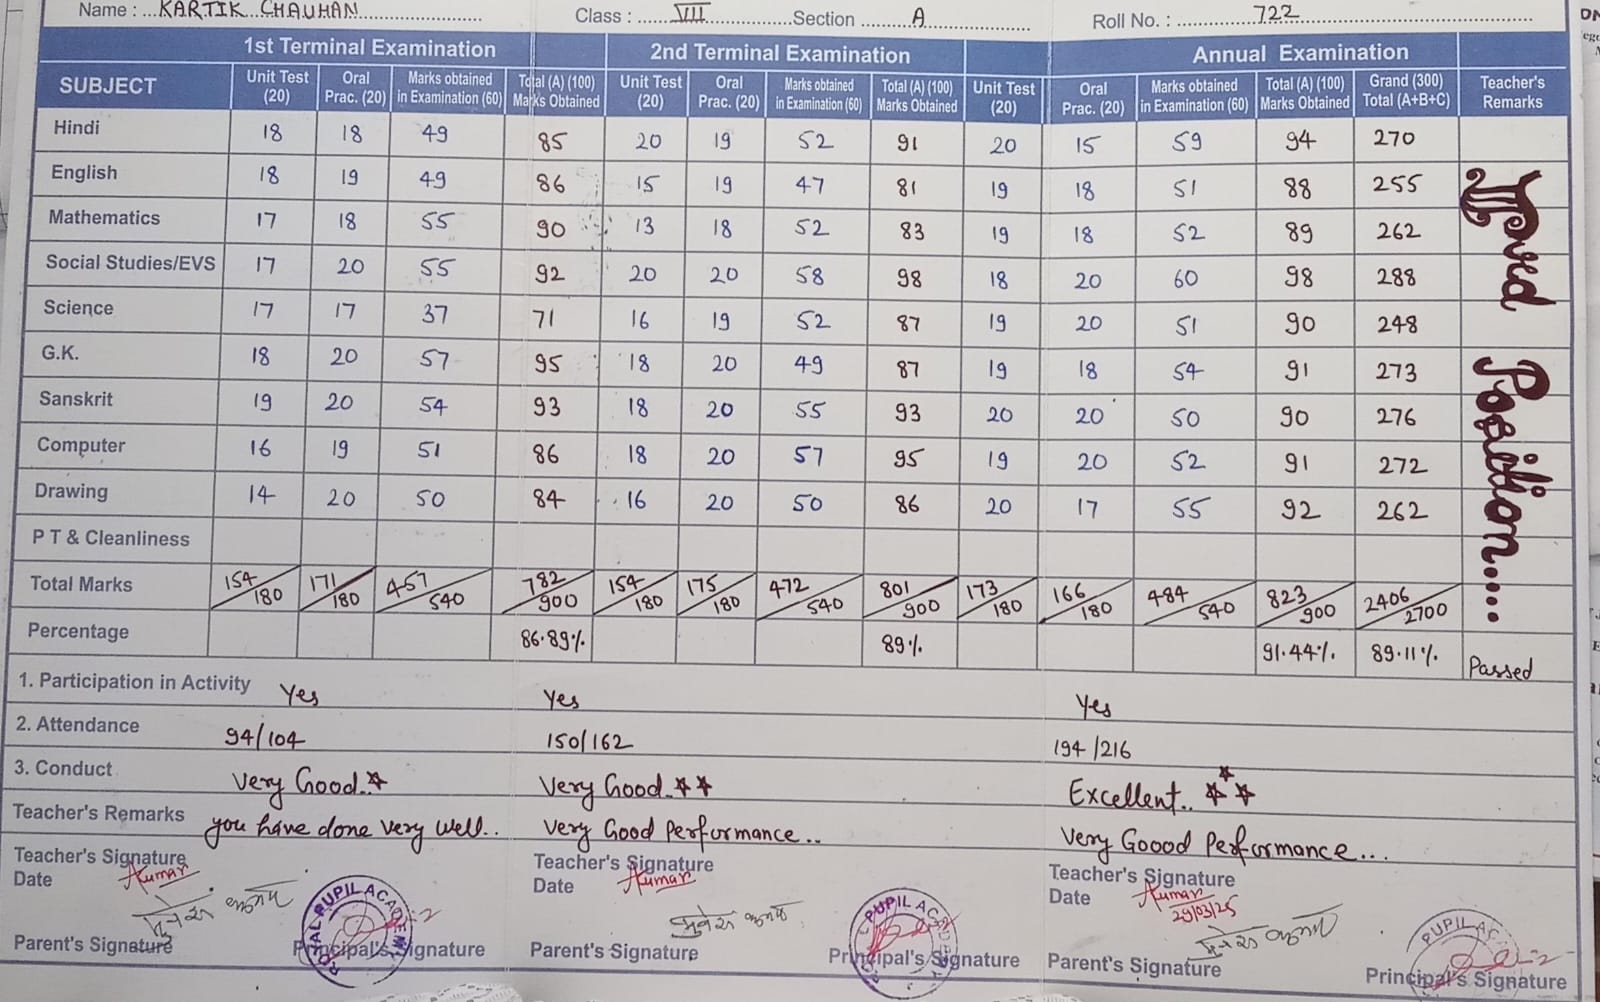 Name : KARTIK CHAUHAN Class : VII Section A Roll No. : 722
1st Terminal Examination 2nd Terminal Examination Annual Examination
SUBJECT Unit Test (20) Oral Prac. (20) Marks obtained in Examination (60) Total (A) (100) Marks Obtained Unit Test (20) Oral Prac. (20) Marks obtained in Examination (60) Total (A) (100) Marks Obtained Unit Test (20) Oral Prac. (20) Marks obtained in Examination (60) Total (A) (100) Marks Obtained Grand (300) Total (A+B+C) Teacher's Remarks
Hindi 18 18 49 85 20 19 52 91 20 15 59 94 270
English 18 19 49 86 15 19 47 81 19 18 51 88 255
Mathematics 17 18 55 90 13 18 52 83 19 18 52 89 262
Social Studies/EVS 17 20 55 92 20 20 58 98 18 20 60 98 288
Science 17 17 37 71 16 19 52 87 19 20 51 90 248
G.K. 18 20 57 95 18 20 49 87 19 18 54 91 273
Sanskrit 19 20 54 93 18 20 55 93 20 20 50 90 276
Computer 16 19 51 86 18 20 57 95 19 20 52 91 272
Drawing 14 20 50 84 16 20 50 86 20 17 55 92 262
P T & Cleanliness
Total Marks 154/180 171/180 457/540 782/900 154/180 175/180 472/540 801/900 173/180 166/180 484/540 823/900 2406/2700
Percentage 86.89% 89% 91.44% 89.11% Passed
Position....
1. Participation in Activity Yes Yes Yes
2. Attendance 94/104 150/162 194/216
3. Conduct Very Good.. Very Good.. Excellent..
Teacher's Remarks you have done very well.. Very Good Performance.. Very Goood Performance...
Teacher's Signature Teacher's Signature Teacher's Signature
Date Kumar Date Kumar Date Kumar 29/03/25
Parent's Signature Principal's Signature Parent's Signature Principal's Signature Parent's Signature Principal's Signature
ROYAL PUPIL ACADEMY
PUPIL ACADEMY
PUPIL ACA